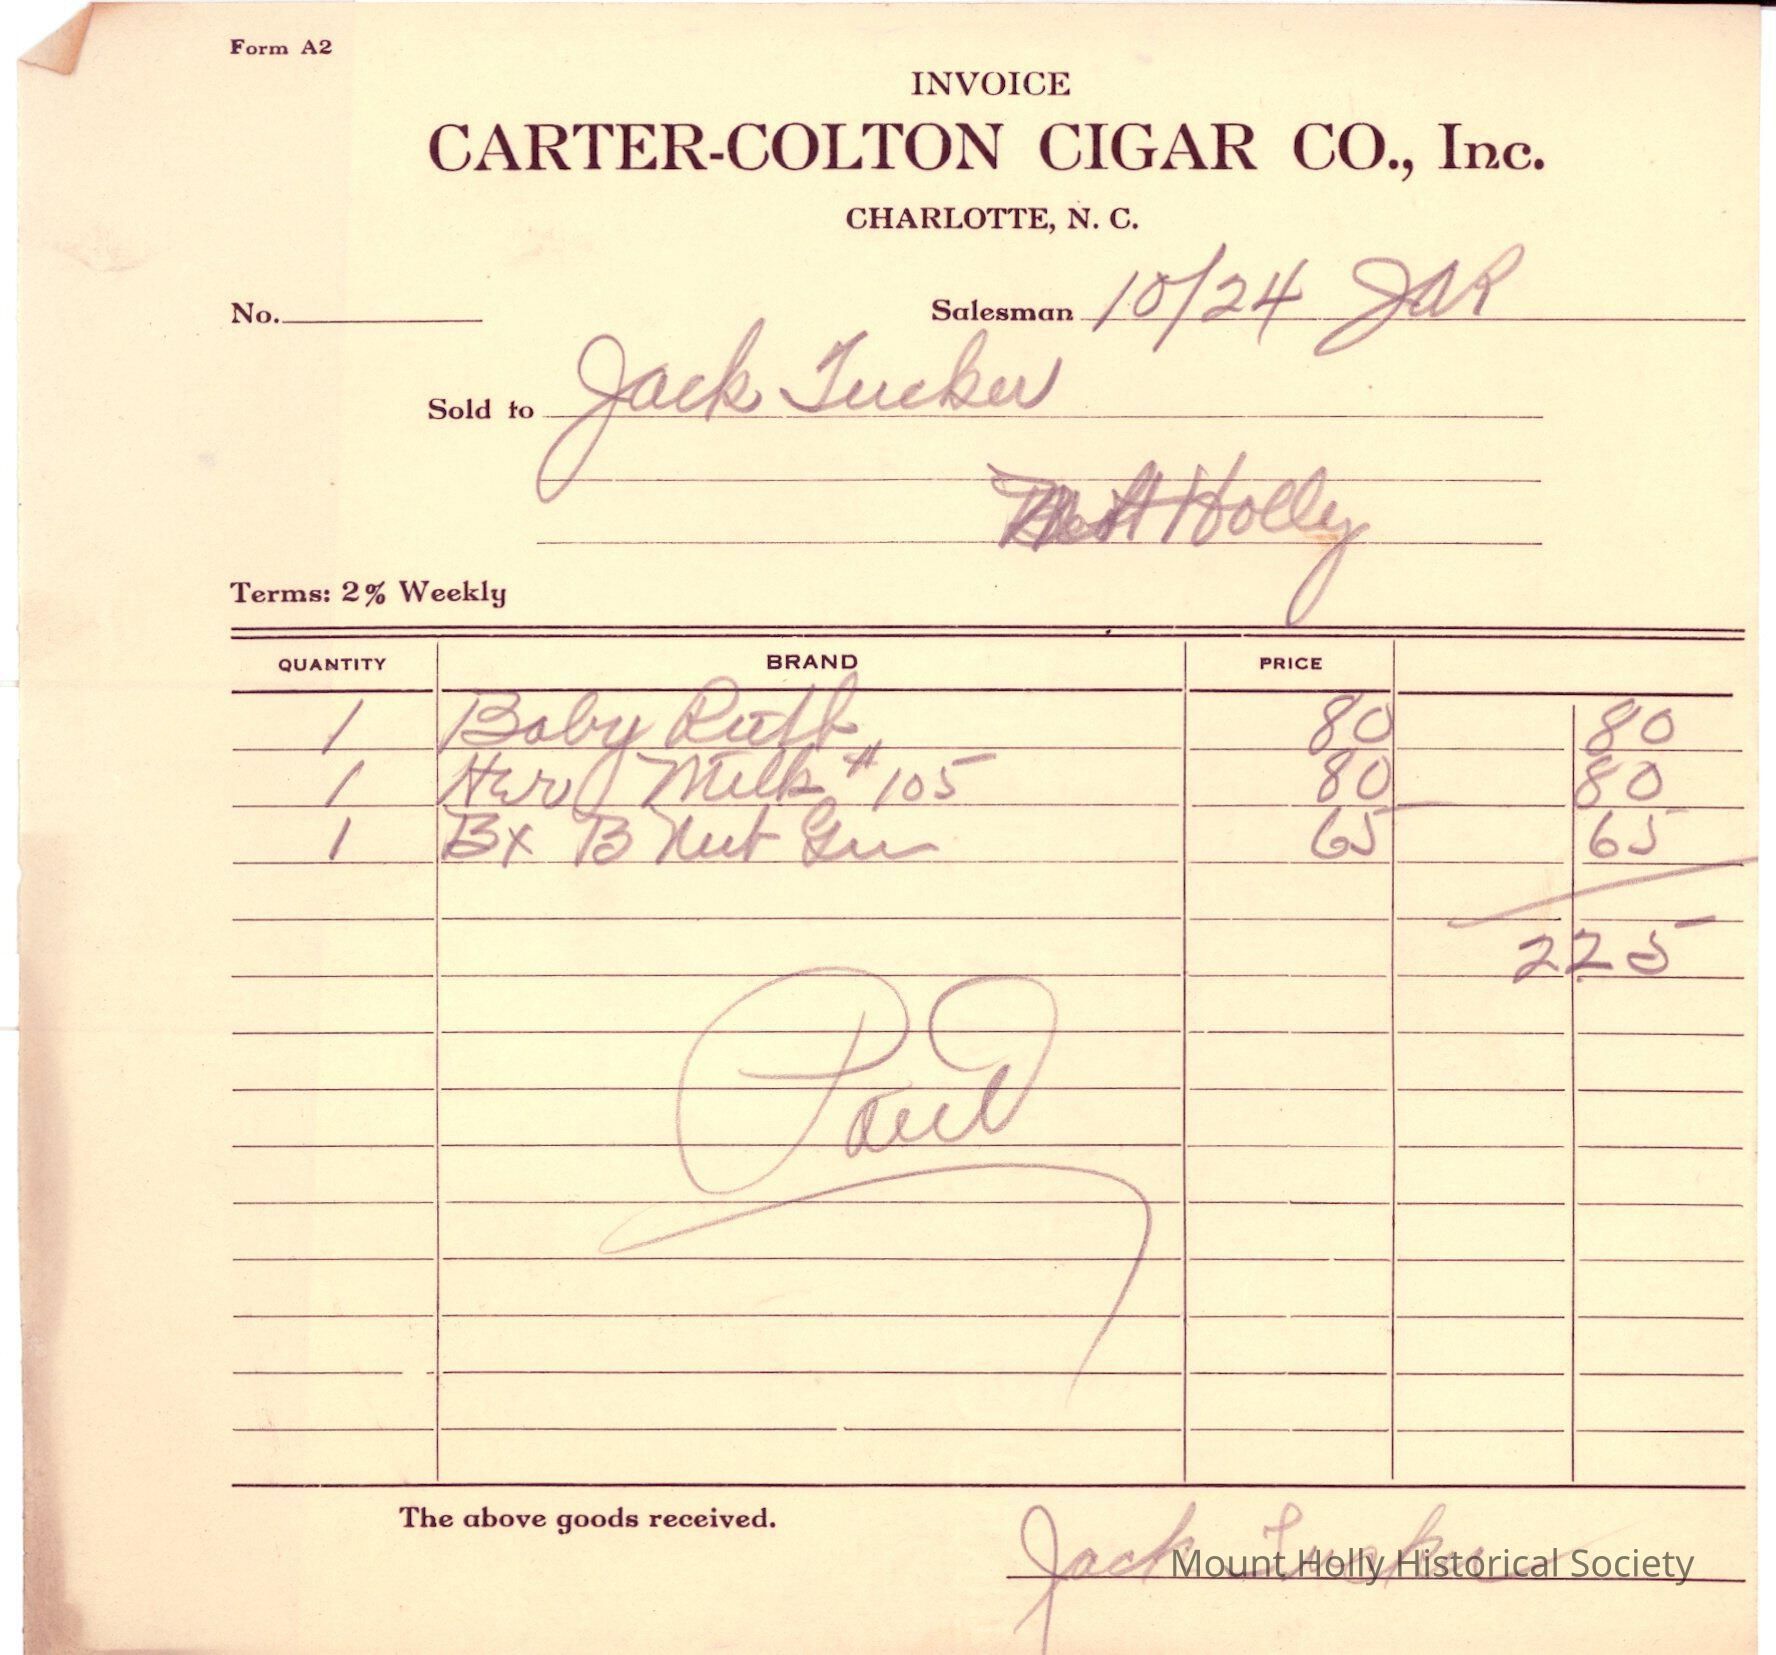 Form A2
INVOICE
CARTER-COLTON CIGAR CO., Inc.
CHARLOTTE, N. C.
No. Salesman 10/24 JAR
Sold to Jack Tucker
Mt Holly
Terms: 2% Weekly
QUANTITY BRAND PRICE
1 Baby Ruth 80 80
1 Her Milk #105 80 80
1 Bx B Nut Gu 65 65
2 25
Paid
The above goods received.
Jack Tucker
Mount Holly Historical Society